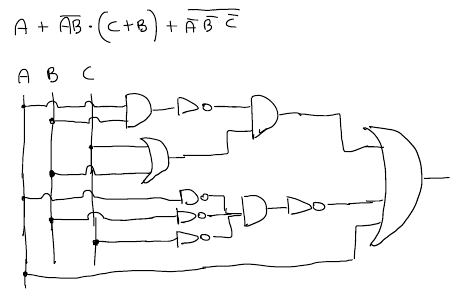 A + A̅B̅ · (C+B) + \overline{A̅ B̅ C̅}
A B C